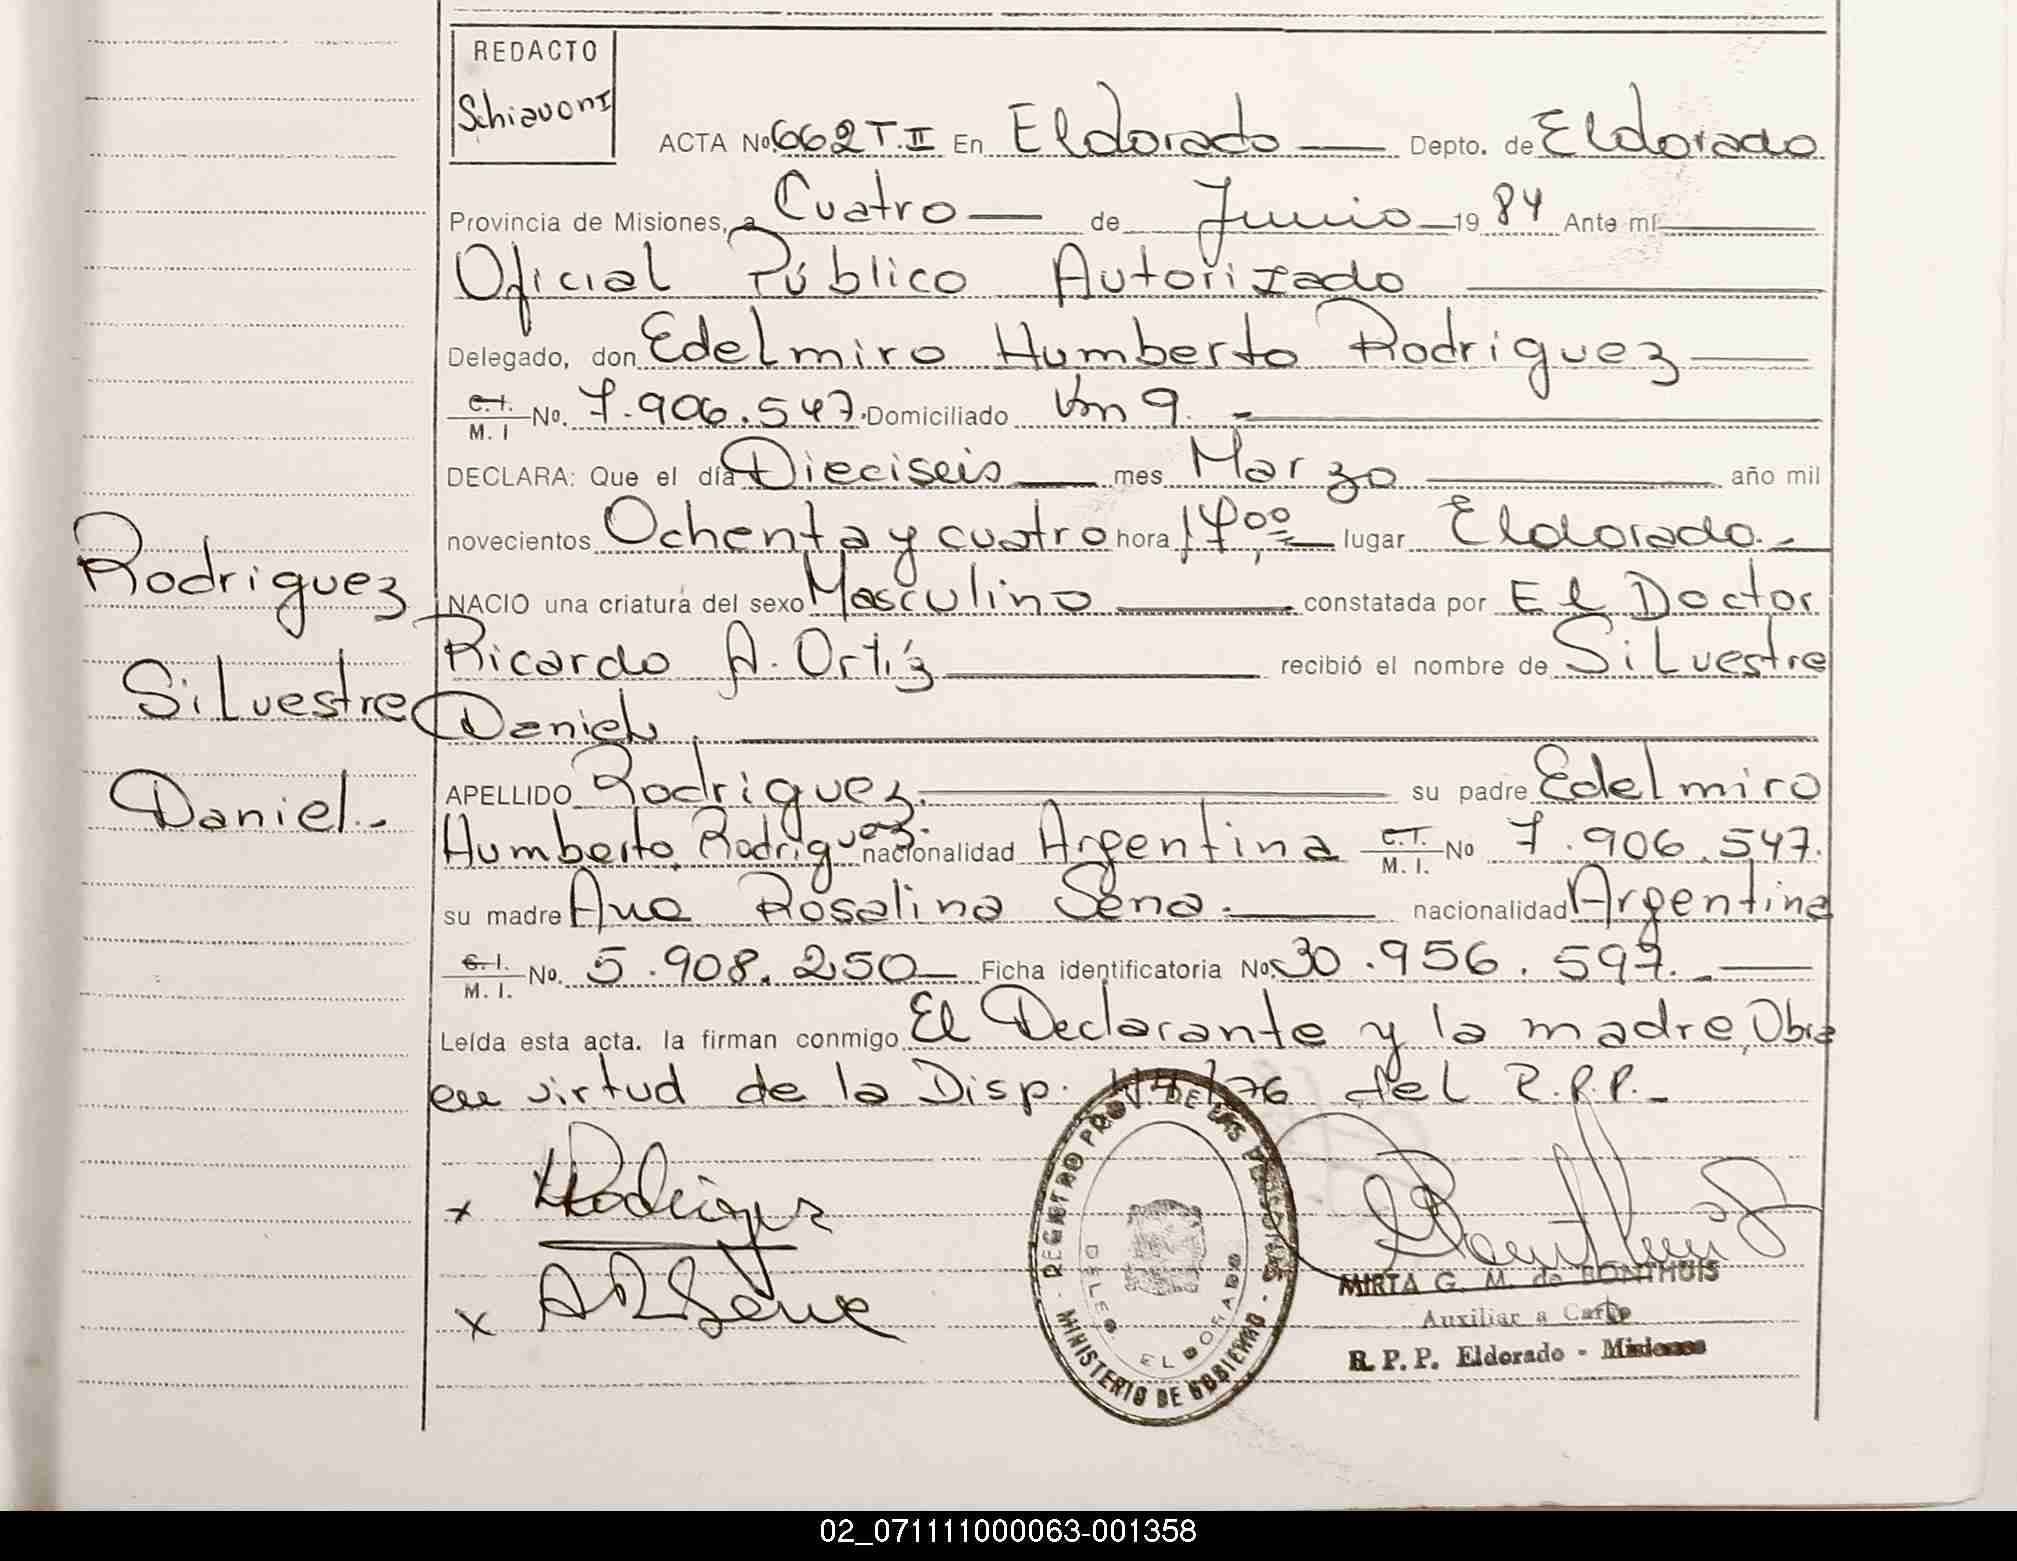 REDACTO
Schiavoni
ACTA No. 662 T.II En Eldorado Depto. de Eldorado
Provincia de Misiones, a Cuatro de Junio 1984 Ante mí
Oficial Público Autorizado
Delegado, don Edelmiro Humberto Rodriguez
C.I. M. I No. 7.906.547. Domiciliado Km 9.
DECLARA: Que el día Dieciseis mes Marzo año mil
novecientos Ochenta y cuatro hora 17,00 lugar Eldorado.-
NACIO una criatura del sexo Masculino constatada por El Doctor
Ricardo A. Ortíz recibió el nombre de Silvestre
Daniel
APELLIDO Rodriguez. su padre Edelmiro
Humberto Rodriguez. nacionalidad Argentina C.I. M. I. No 7.906.547.
su madre Ana Rosalina Sena. nacionalidad Argentina
C.I. M. I. No. 5.908.250 Ficha identificatoria No. 30.956.597.
Leída esta acta. la firman conmigo El Declarante y la madre, Obra
en virtud de la Disp. /76 del R.P.P.-
Rodriguez
Silvestre
Daniel.-
x Rodriguez
x A R Sena
REGISTRO PROV. DE LAS PERSONAS
MINISTERIO DE GOBIERNO
DELEG. ELDORADO
MIRTA G. M. de BONTHUIS
Auxiliar a Cargo
R. P. P. Eldorado - Misiones
02_071111000063-001358